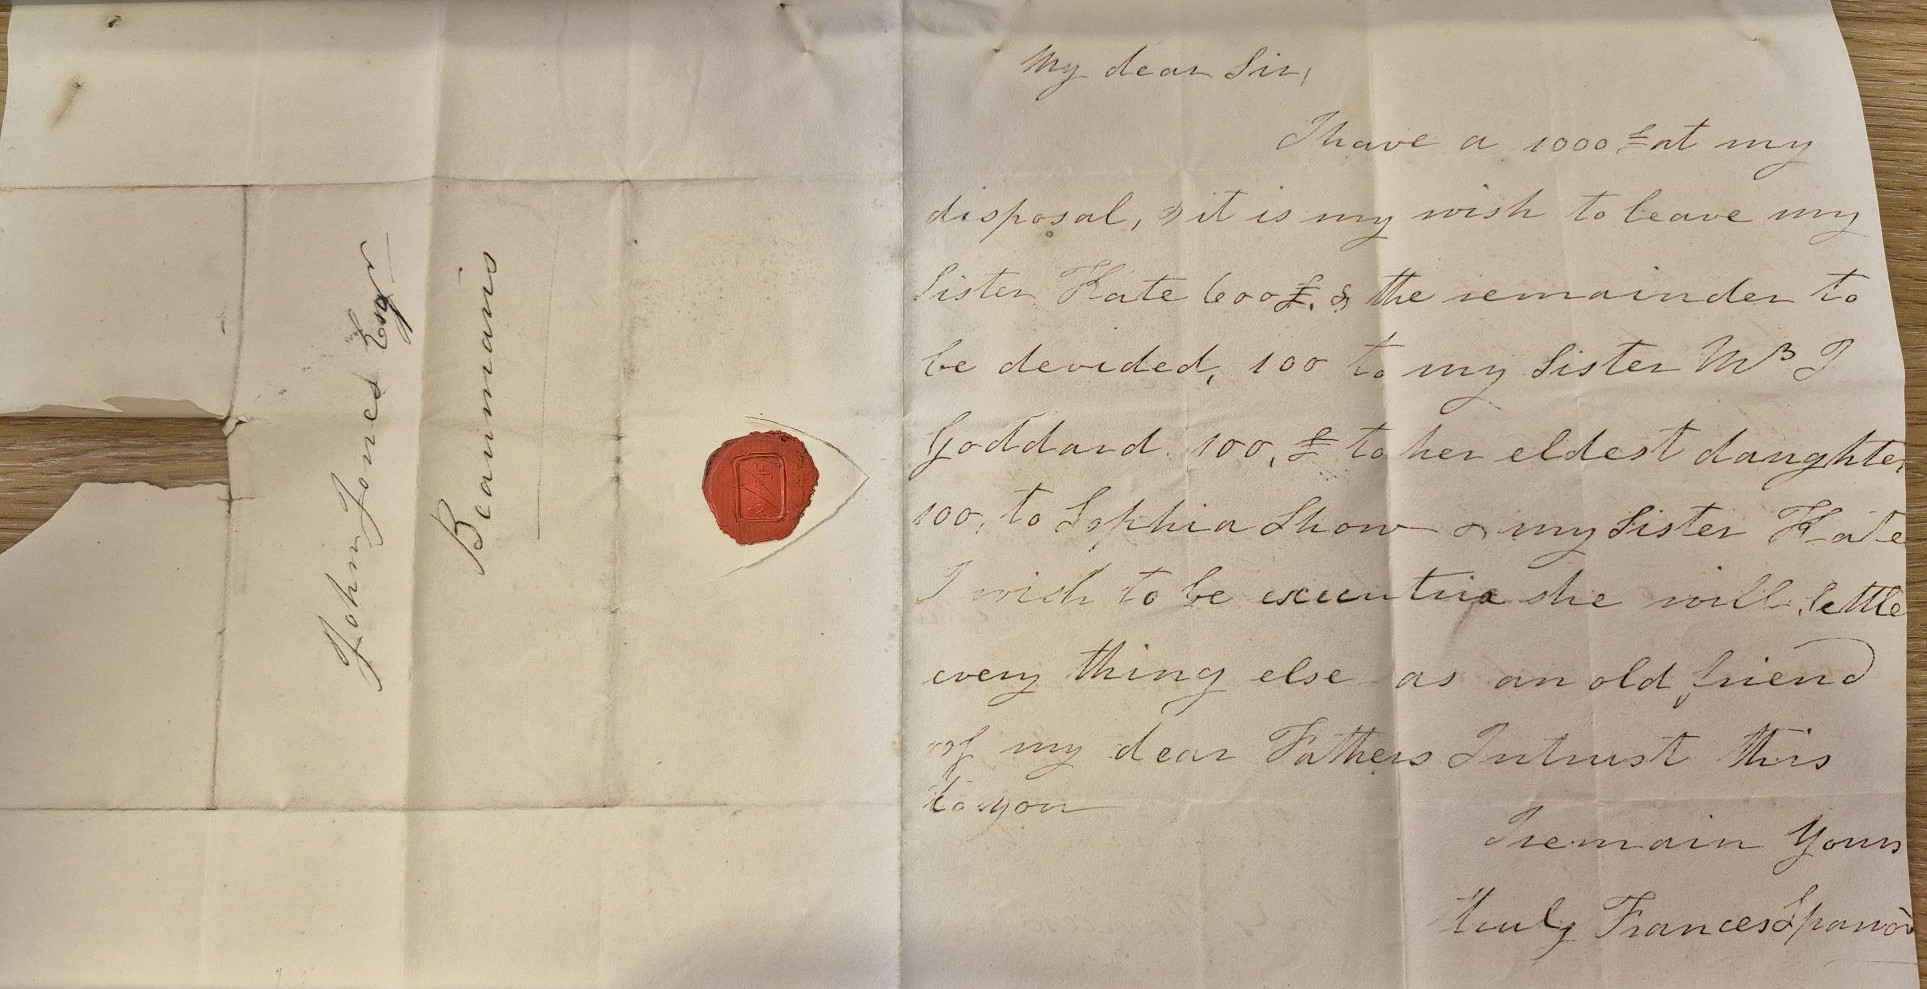 John Jones Esqr
Beaumaris
My dear Sir,
I have a 1000 £ at my
disposal, & it is my wish to leave my
Sister Kate 600£. & the remainder to
be devided, 100 to my Sister Mrs J
Goddard. 100, £ to her eldest daughter
100, to Sophia Show & my Sister Kate
I wish to be executrix she will settle
every thing else as an old friend
of my dear Fathers I intrust this
to you
I remain Yours
truly Frances